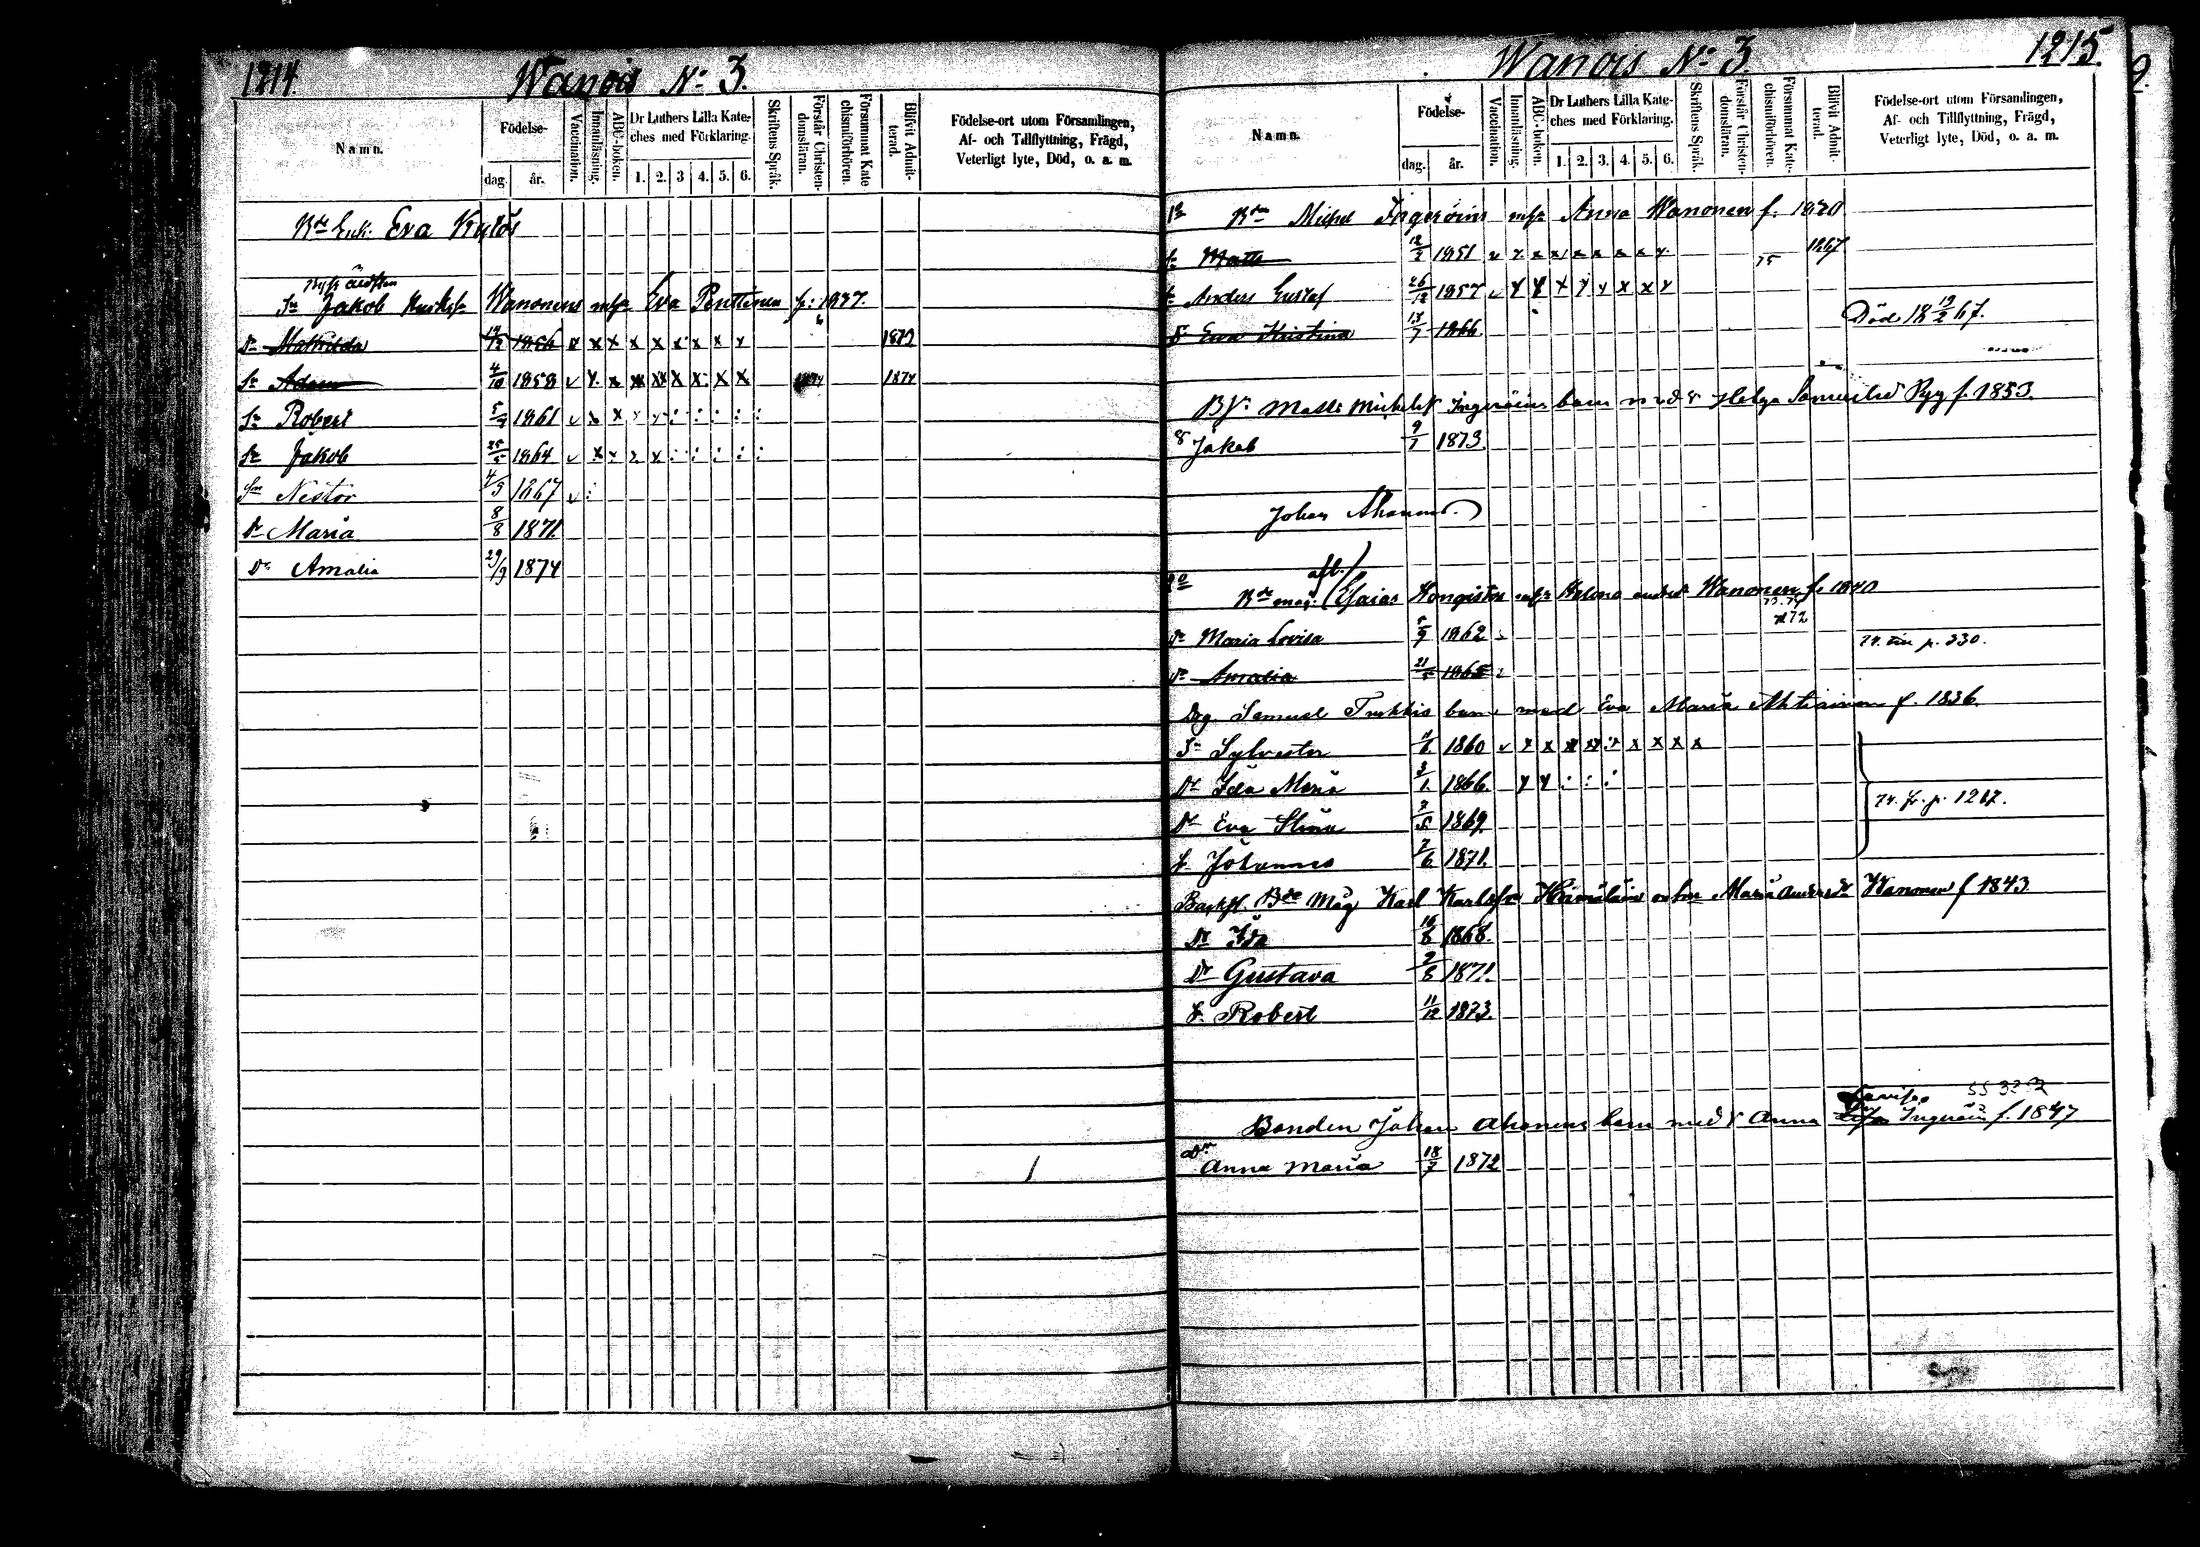 1214.
Wanois No 3.
Namn.
Födelse-
dag.
år.
Vaccination.
Innanläsning.
ABC-boken.
Dr Luthers Lilla Kate-
ches med Förklaring.
1. 2. 3 4. 5. 6.
Skriftens Språk.
Förstår Christen-
domsläran.
Försummat Kate
chismiförhören.
Blifvit Admit-
terad.
Födelse-ort utom Församlingen,
Af- och Tillflyttning, Frägd,
Veterligt lyte, Död, o. a. m.
Eva Kylös
Sn Jakob Wanonens Eva Penttinen f: 1837.
Dr Mathilda 1856 x x x x x x x 1872
Sn Adam 4/10 1858 v x x x x x x x x 1874
Sn Robert 5/7 1861 v x x x x : : : : :
Sn Jakob 25/5 1864 v x x x x : : : : :
Sn Nestor 4/5 1867 v :
Dr Maria 8/8 1871.
Dr Amalia 29/9 1874
Wanois No 3
1215.
Namn.
Födelse-
dag.
år.
Vaccination.
Innanläsning.
ABC-boken.
Dr Luthers Lilla Kate-
ches med Förklaring.
1. 2. 3. 4. 5. 6.
Skriftens Språk.
Förstår Christen-
domsläran.
Försummat Kate-
chismiförhören.
Blifvit Admit-
terad.
Födelse-ort utom Församlingen,
Af- och Tillflyttning, Frägd,
Veterligt lyte, Död, o. a. m.
Michel Ingeröins Anna Wanonen f. 1820
Sn Matts 12/2 1851 v x x x x x x x x 75 1867
Sn Anders Gustaf 26/12 1857 v x x x x x x x x
Dr Eva Kristina 13/7 1866 Död 18 19/2 67.
Matts Michelss Ingeröins barn med Helga Samuelsd Ryg f. 1853.
S Jakob 9/1 1873.
Johan Ahonens.
afl.
Esaias Kongistos Helena Wanonen f. 1840
72
Dr Maria Lovisa 5/9 1862 74. p. 330.
Dr Amalia 21/5 1865
Drg. Samuel Trukkis barn med Eva Maria Ahtiainen f. 1836.
Sn Sylvester 11/6 1860 v x x x x x x x x x
Dr Ida Maria 3/1 1866. x x : : :
Dr Eva Stina 7/5 1869 74. fr. p. 1217.
S. Johannes 7/6 1871.
Bde Måg Karl Karlss Hämäläin Maria Wanonen f 1843.
Dr Ida 16/8 1868.
Dr Gustava 9/6 1871.
S. Robert 11/12 1873.
Lovisa
Bonden Johan Ahonens barn med Anna Ingeröin f. 1847
Dr Anna Maria 18/7 1872